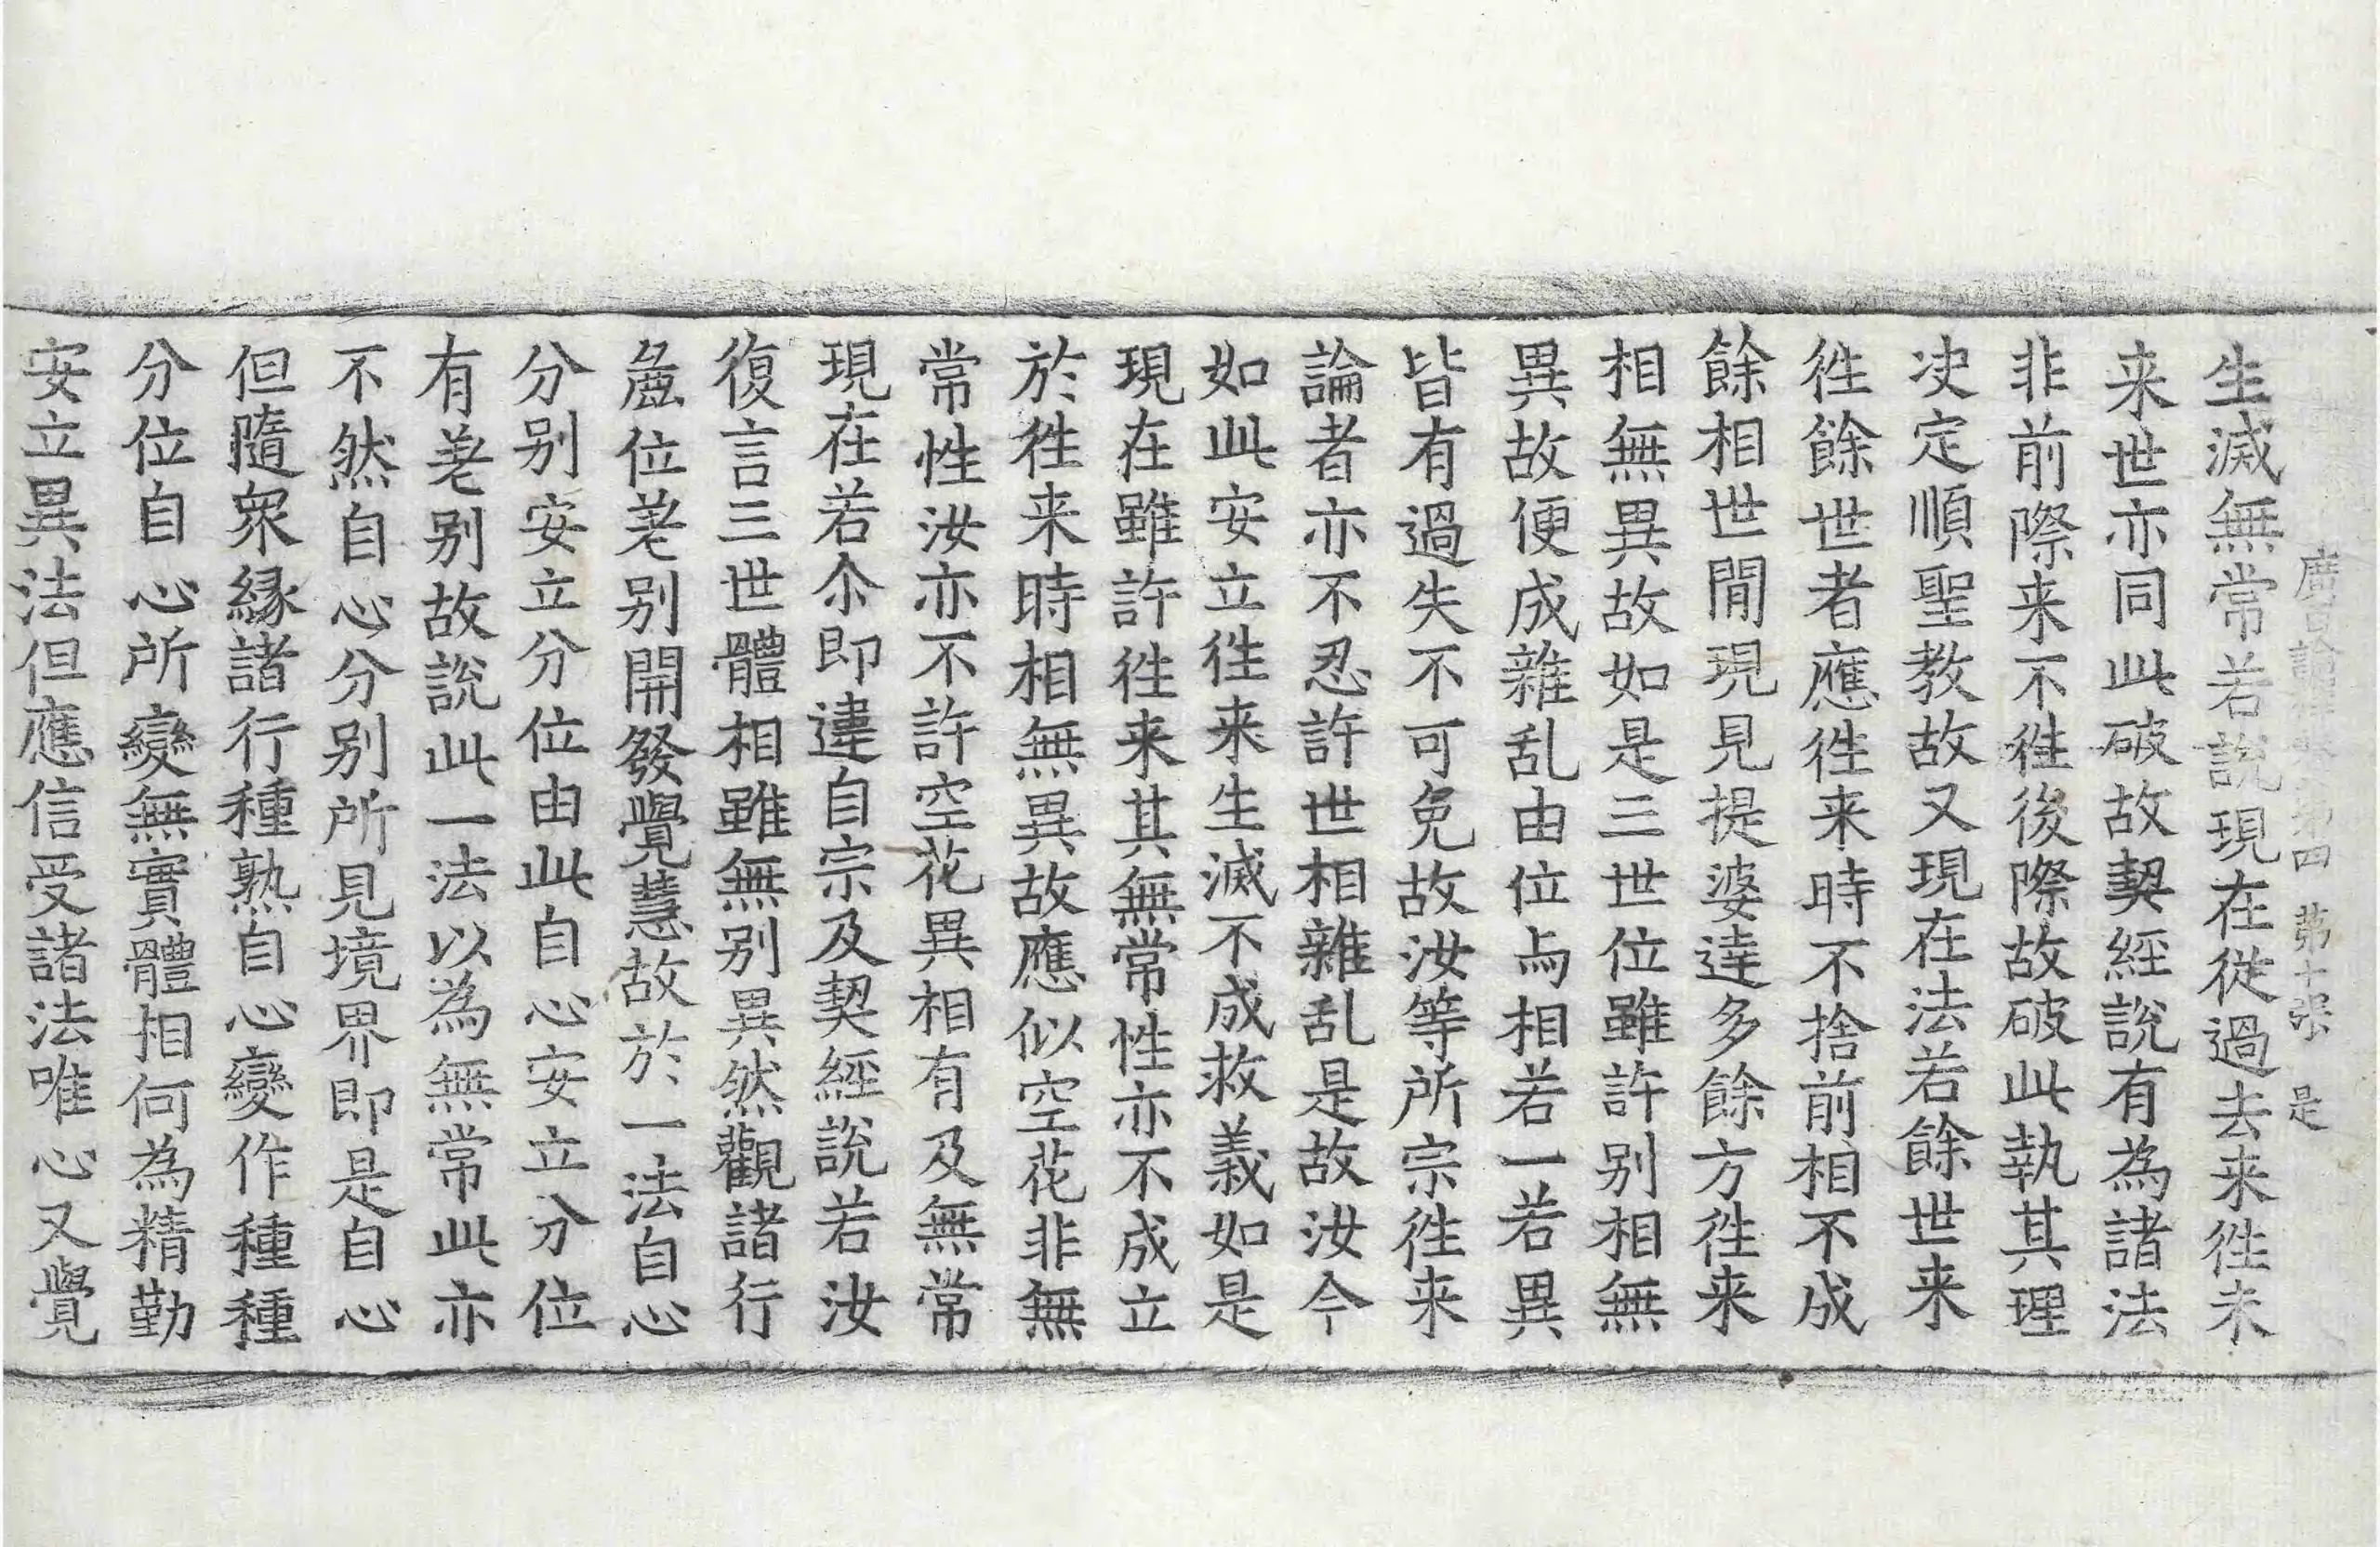 廣百論釋論第四 第十張 是
生滅無常若說現在從過去来徃未
来世亦同此破故契經說有為諸法
非前際来不徃後際故破此執其理
决定順聖教故又現在法若餘世来
徃餘世者應徃来時不捨前相不成
餘相世間現見提婆達多餘方徃来
相無異故如是三世位雖許别相無
異故便成雜乱由位与相若一若異
皆有過失不可免故汝等所宗徃来
論者亦不忍許世相雜乱是故汝今
如此安立徃来生滅不成救義如是
現在雖許徃来其無常性亦不成立
於徃来時相無異故應似空花非無
常性汝亦不許空花異相有及無常
現在若尒即違自宗及契經說若汝
復言三世體相雖無别異然觀諸行
麁位差别開發覺慧故於一法自心
分别安立分位由此自心安立分位
有差别故說此一法以為無常此亦
不然自心分别所見境界即是自心
但隨衆縁諸行種熟自心變作種種
分位自心所變無實體相何為精勤
安立異法但應信受諸法唯心又覺